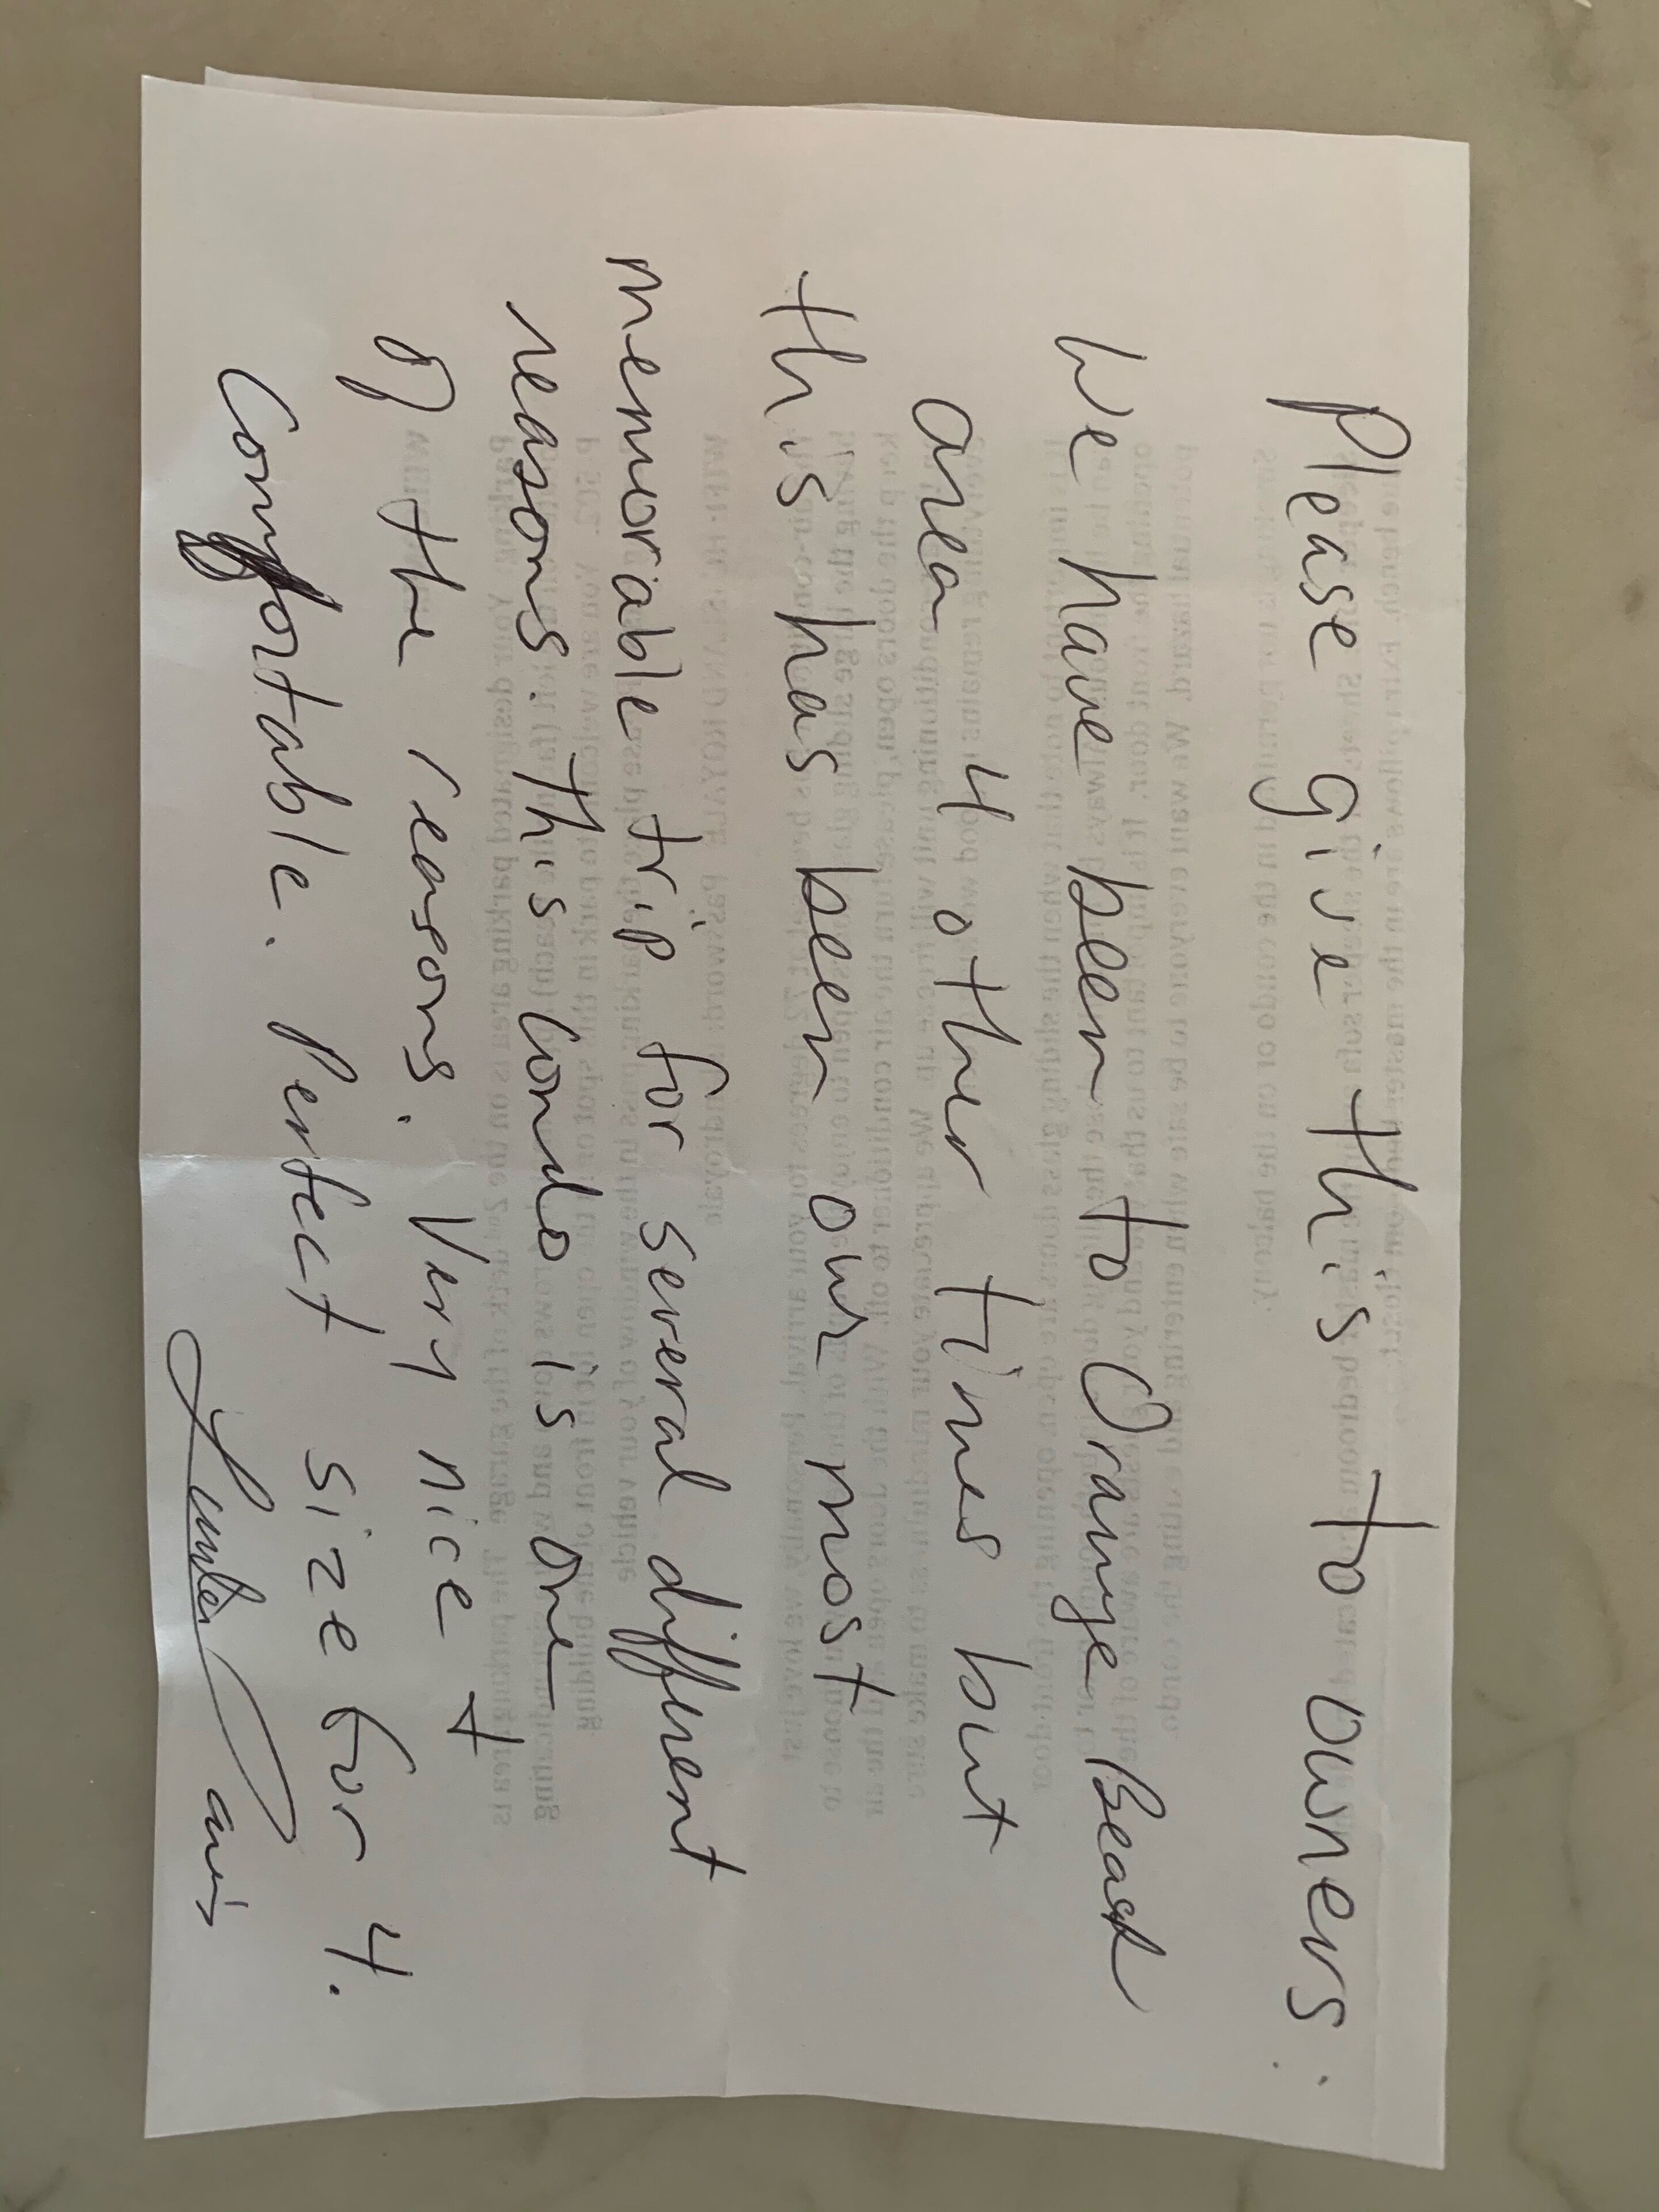 Please give this to owners:
We have been to Orange Beach
area 4 other times but
this has been our most
memorable trip for several different
reasons. This condo is one
of the reasons. Very nice +
Comfortable. Perfect size for 4.